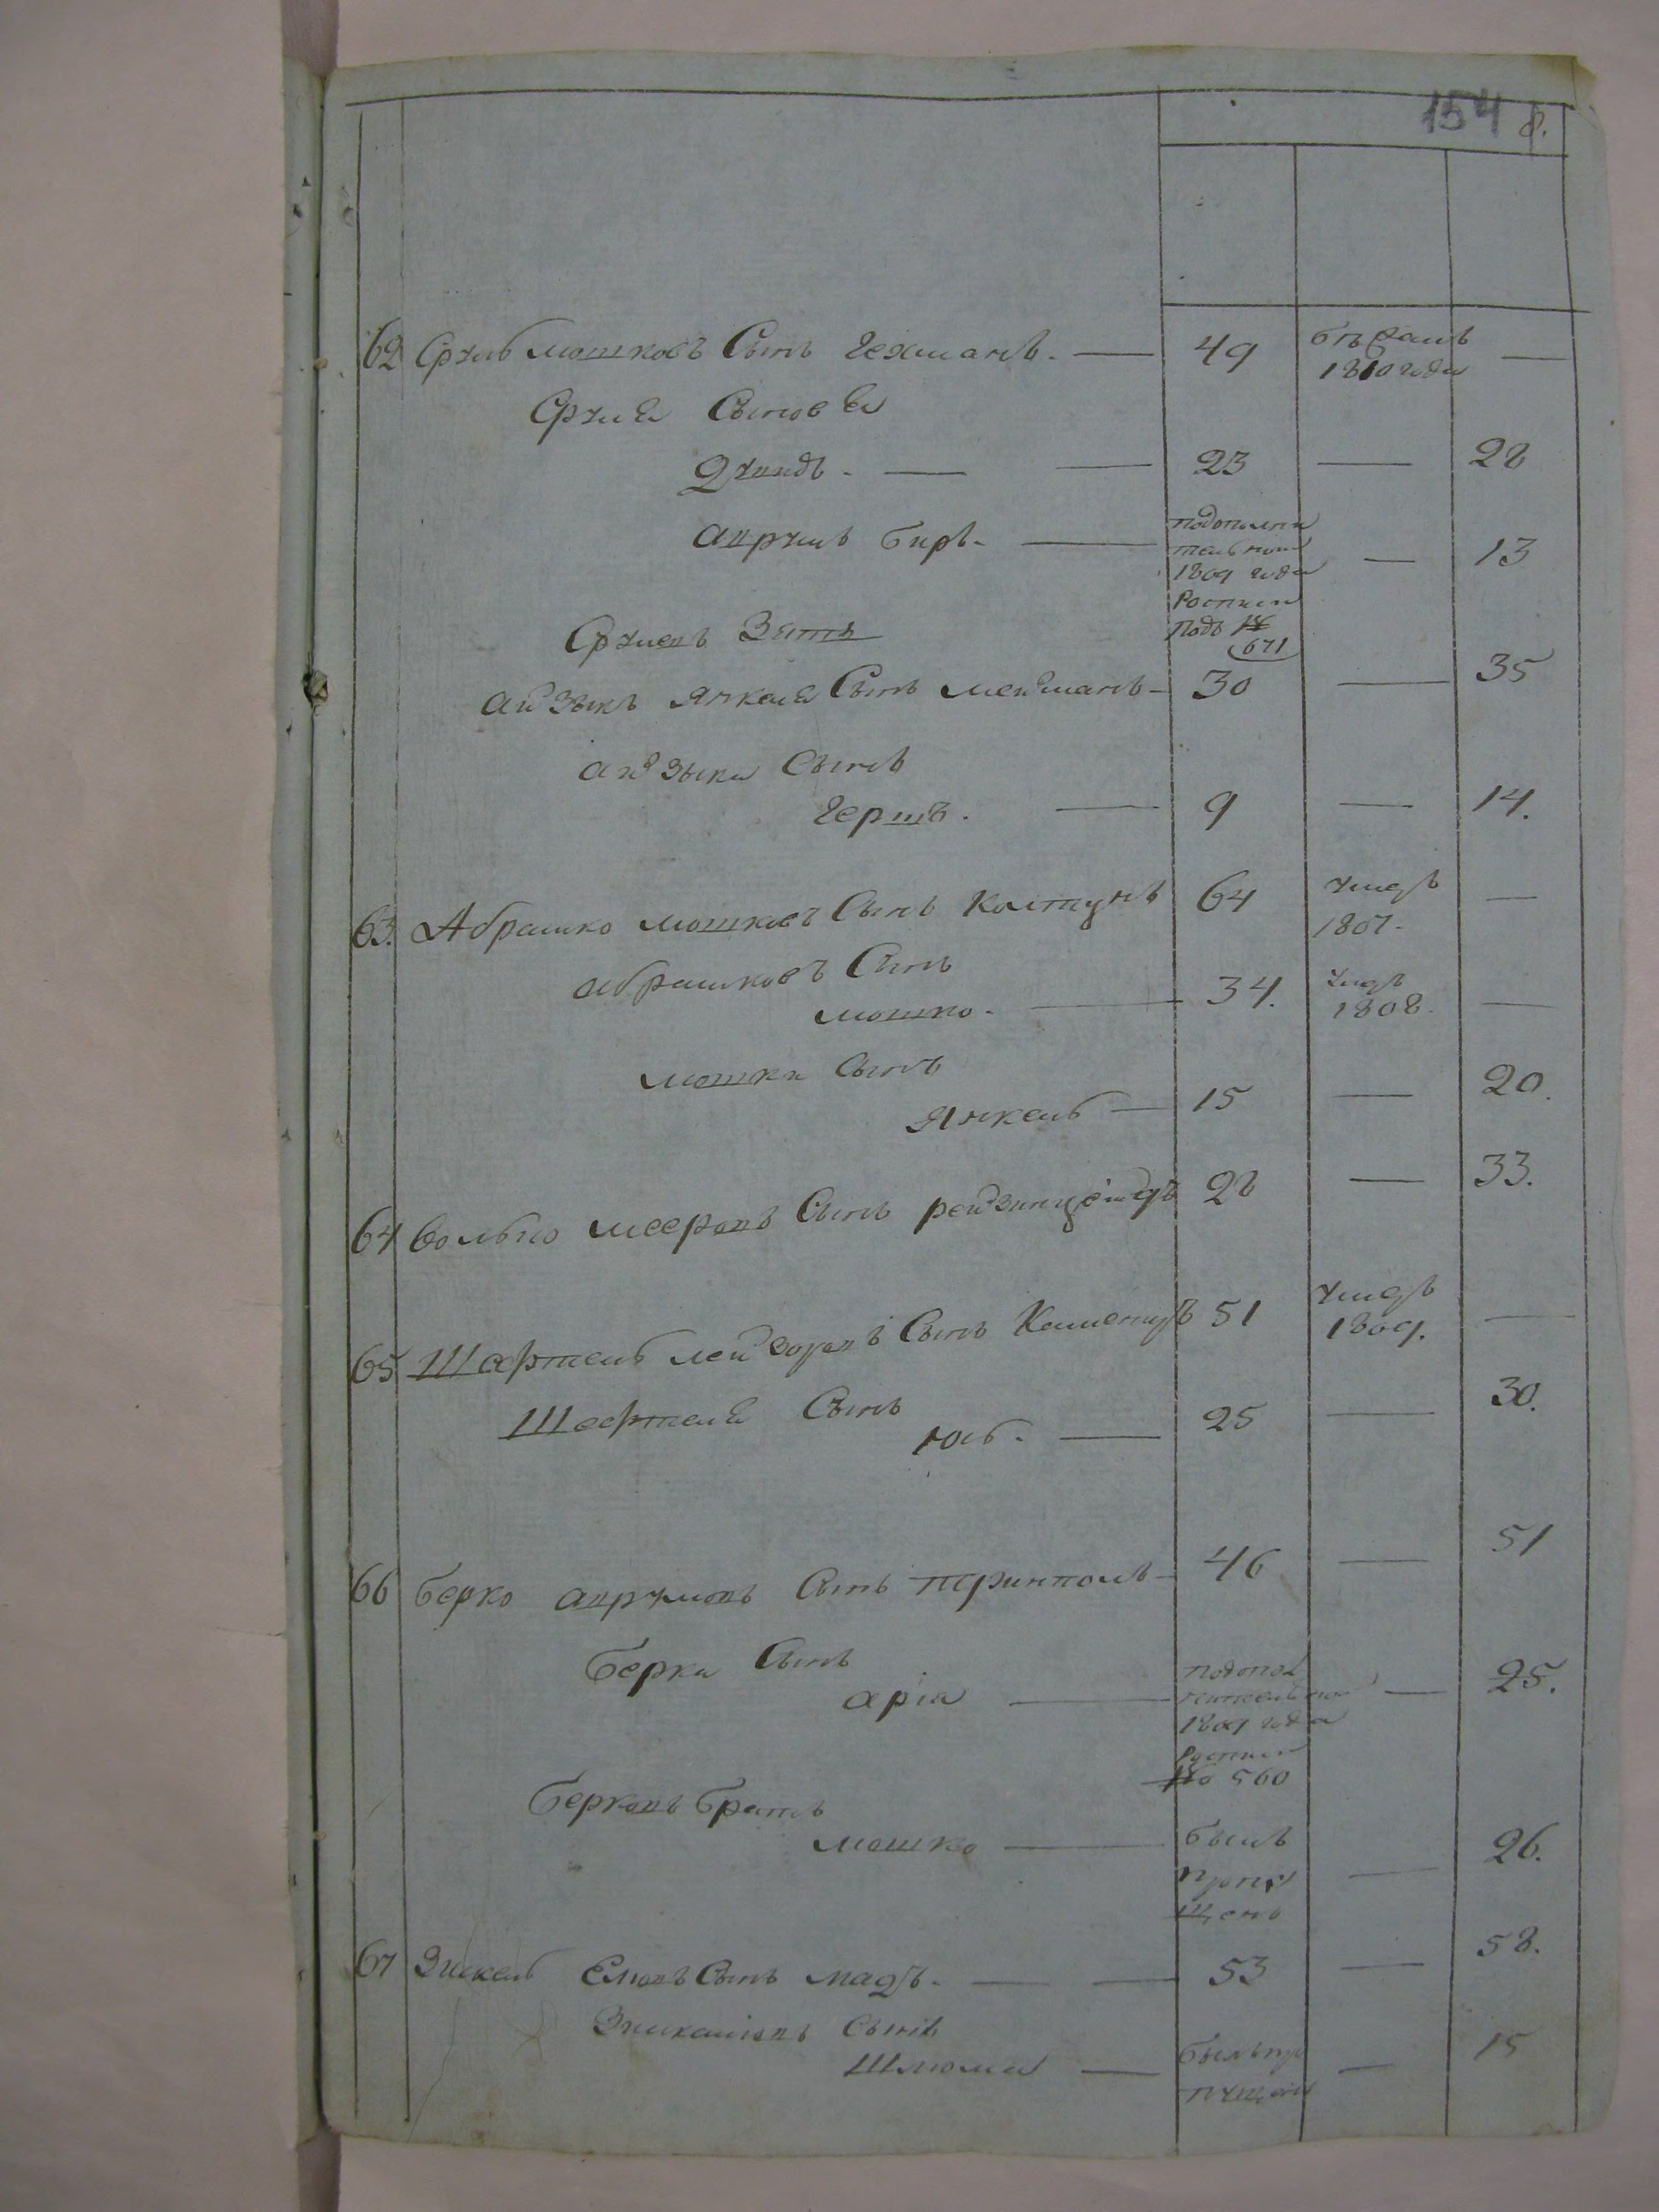 154 8.
62 Срулъ мошковъ Сынъ Гехманъ. — 49 бѣжалъ 1810 года —
Сруля Сыновья
Дувидъ — 23 — 28
аврумъ бирь — подополни тельной 1809 года Росписи Подъ № 671 — 13
Срулевъ Зять
айзыкъ янкеля Сынъ мейманъ — 30 — 35
айзыка Сынъ
Гершъ. — 9 — 14.
63. Абрашко мошковъ Сынъ Колтунъ 64 умеръ 1807. —
абрашковъ Сынъ
мошко. — 34. умеръ 1808. —
мошки Сынъ
Янкель — 15 — 20.
64 Волько мееровъ Сынъ 28 — 33.
65 Шефтель лейзоровъ Сынъ Камениръ 51 умеръ 1809. —
Шефтеля Сынъ
Юсь. — 25 — 30.
66 берко аврумовъ Сынъ — 46 — 51
берка Сынъ
арія — подопол нительной 1809 года Росписи № 560 — 25.
берковъ братъ
мошко — былъ пропу щенъ — 26.
67 Эникель Сынъ мадъ. — 53 — 58.
Сынъ
Шлюма — былъ про пущенъ — 15